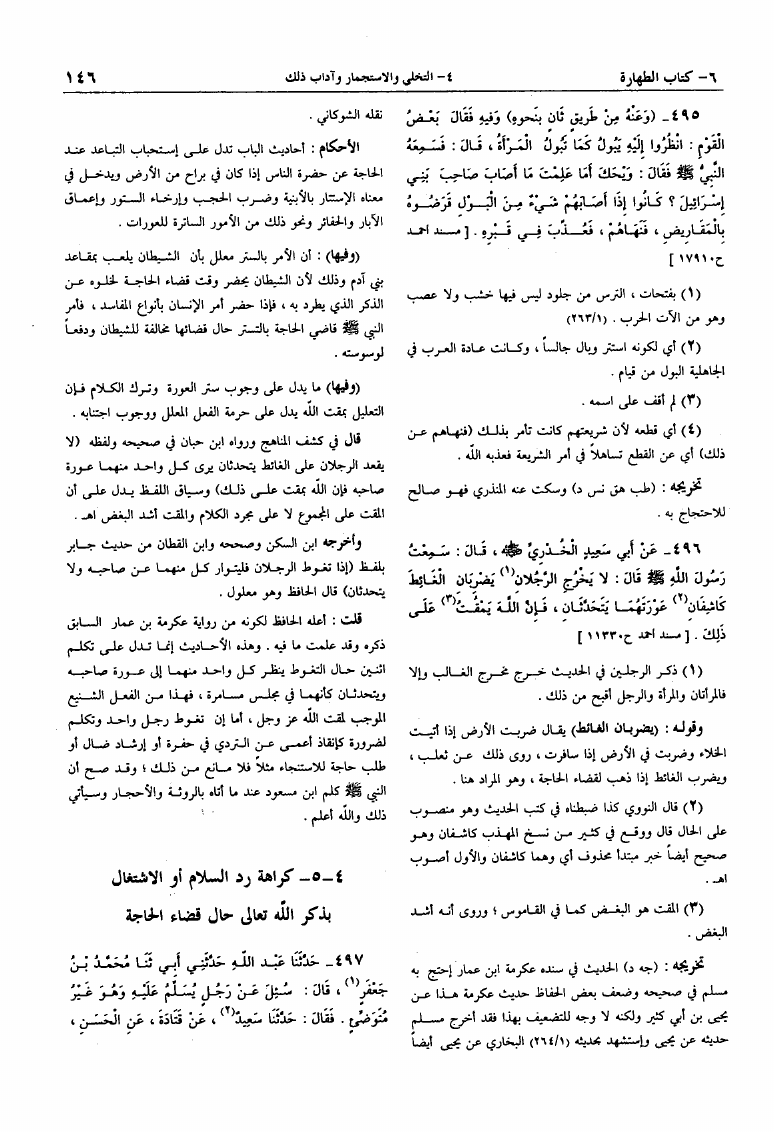 ٦- كتاب الطهارة
٤- التخلي والاستجمار وآداب ذلك
١٤٦
٤٩٥- (وَعَنْهُ مِنْ طَرِيقٍ ثَانٍ بِنَحوِهِ) وَفِيهِ فَقَالَ بَعْضُ
الْقَوْمِ: انْظُرُوا إِلَيْهِ يَبُولُ كَمَا تَبُولُ الْمَرْأَةُ، قَالَ: فَسَمِعَهُ
النَّبِيُّ ﷺ فَقَالَ: وَيْحَكَ أَمَا عَلِمْتَ مَا أَصَابَ صَاحِبَ بَنِي
إِسْرَائِيلَ؟ كَانُوا إِذَا أَصَابَهُمْ شَيْءٌ مِنَ الْبَوْلِ قَرَضُوهُ
بِالْمَقَارِيضِ، فَنَهَاهُمْ، فَعُذِّبَ فِي قَبْرِهِ. [مسند احمد
ح١٧٩١٠]
(١) بفتحات، الترس من جلود ليس فيها خشب ولا عصب
وهو من آلات الحرب. (٢٦٣/١)
(٢) أي لكونه استتر وبال جالساً، وكانت عادة العرب في
الجاهلية البول من قيام.
(٣) لم أقف على اسمه.
(٤) أي قطعه لأن شريعتهم كانت تأمر بذلك (فنهاهم عن
ذلك) أي عن القطع تساهلاً في أمر الشريعة فعذبه الله.
تخريجه: (طب هق نس د) وسكت عنه المنذري فهو صالح
للاحتجاج به.
٤٩٦- عَنْ أَبي سَعِيدٍ الْخُدْرِيِّ ﷺ، قَالَ: سَمِعْتُ
رَسُولَ اللهِ ﷺ قَالَ: لا يَخْرُجِ الرَّجُلان(١) يَضْرِبَان الْغَائِطَ
كَاشِفَان(٢) عَوْرَتَهُمَا يَتَحَدَّثَان، فَإِنَّ اللهَ يَمْقُتُ(٣) عَلَى
ذَلِكَ. [مسند احمد ح١١٣٣٠]
(١) ذكر الرجلين في الحديث خرج مخرج الغالب وإلا
فالمرأتان والمرأة والرجل أقبح من ذلك.
وقوله: (يضربان الغائط) يقال ضربت الأرض إذا أتيت
الخلاء وضربت في الأرض إذا سافرت، روى ذلك عن ثعلب،
ويضرب الغائط إذا ذهب لقضاء الحاجة، وهو المراد هنا.
(٢) قال النووي كذا ضبطناه في كتب الحديث وهو منصوب
على الحال قال ووقع في كثير من نسخ المهذب كاشفان وهو
صحيح أيضاً خبر مبتدأ محذوف أي وهما كاشفان والأول أصوب
اهـ.
(٣) المقت هو البغض كما في القاموس؛ وروى أنه أشد
البغض.
تخريجه: (جه د) الحديث في سنده عكرمة ابن عمار إحتج به
مسلم في صحيحه وضعف بعض الحفاظ حديث عكرمة هذا عن
يحيى بن أبي كثير ولكنه لا وجه للتضعيف بهذا فقد أخرج مسلم
حديثه عن يحيى وإستشهد بحديثه (٢٦٤/١) البخاري عن يحيى أيضاً
نقله الشوكاني.
الأحكام: أحاديث الباب تدل على إستحباب التباعد عند
الحاجة عن حضرة الناس إذا كان في براح من الأرض ويدخل في
معناه الإستتار بالأبنية وضرب الحجب وإرخاء الستور وإعماق
الآبار والحفائر ونحو ذلك من الأمور الساترة للعورات.
(وفيها): أن الأمر بالستر معلل بأن الشيطان يلعب بمقاعد
بني آدم وذلك لأن الشيطان يحضر وقت قضاء الحاجة لخلوه عن
الذكر الذي يطرد به، فإذا حضر أمر الإنسان بأنواع المفاسد، فأمر
النبي ﷺ قاضي الحاجة بالتستر حال قضائها مخالفة للشيطان ودفعاً
لوسوسته.
(وفيها) ما يدل على وجوب ستر العورة وترك الكلام فإن
التعليل بمقت الله يدل على حرمة الفعل المعلل ووجوب اجتنابه.
قال في كشف المناهج ورواه ابن حبان في صحيحه ولفظه (لا
يقعد الرجلان على الغائط يتحدثان يرى كل واحد منهما عورة
صاحبه فإن الله يمقت على ذلك) وسياق اللفظ يدل على أن
المقت على المجموع لا على مجرد الكلام والمقت أشد البغض اهـ.
وأخرجه ابن السكن وصححه وابن القطان من حديث جابر
بلفظ (إذا تغوط الرجلان فليتوار كل منهما عن صاحبه ولا
يتحدثان) قال الحافظ وهو معلول.
قلت: أعله الحافظ لكونه من رواية عكرمة بن عمار السابق
ذكره وقد علمت ما فيه. وهذه الأحاديث إنما تدل على تكلم
اثنين حال التغوط ينظر كل واحد منهما إلى عورة صاحبه
ويتحدثان كأنهما في مجلس مسامرة، فهذا من الفعل الشنيع
الموجب لمقت الله عز وجل، أما إن تغوط رجل واحد وتكلم
لضرورة كإنقاذ أعمى عن التردي في حفرة أو إرشاد ضال أو
طلب حاجة للاستنجاء مثلاً فلا مانع من ذلك؛ وقد صح أن
النبي ﷺ كلم ابن مسعود عند ما أتاه بالروثة والأحجار وسيأتي
ذلك والله أعلم.
٤-٥- كراهة رد السلام أو الاشتغال
بذكر الله تعالى حال قضاء الحاجة
٤٩٧- حَدَّثَنَا عَبْد اللهِ حَدَّثَنِي أَبِي ثَنَا مُحَمَّدُ بْنُ
جَعْفَرٍ(١)، قَالَ: سُئِلَ عَنْ رَجُلٍ يُسَلَّمُ عَلَيْهِ وَهُوَ غَيْرُ
مُتَوَضِّئٍ. فَقَالَ: حَدَّثَنَا سَعِيدٌ(٢)، عَنْ قَتَادَةَ، عَنِ الْحَسَنِ،